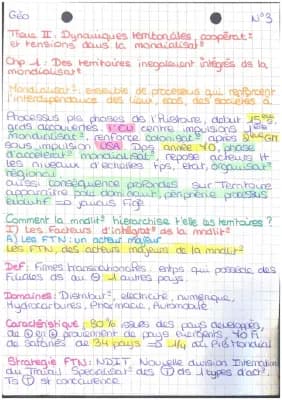 Géo N°3
Thème II : Dynamiques territoriales, coopérat°
et tensions dans la mondialisat°
Chp 1 : Des territoires inégalement intégrés de la
mondialisat°
Mondialisat° : ensemble de processus qui renforcent
l'interdépendance des lieux, eco, des sociétés à
Processus pls phases de l'Histoire, début 15e s.
grds découvertes. 1e CU centre impulsions 1ère
Mondialisat°, renforcé colonisat° après 2nde GM
sous impulsion USA. Dps année 70, phase
d'accélérat° mondialisat°, repose acteurs et
les niveaux d'échelles tps, Etat, organisat°
régional
aussi conséquence profondes sur Territoire
apparaitre pôle dominant, périphérie processus
évolutif => jamais figé
Comment la mndlit° hiérarchise t'elle les territoires ?
I) Les Facteurs d'intégrat° de la mndlit°
A) Les FTN : un acteur majeur
Les FTN, des acteurs majeurs de la mndlit°
Def : Firmes transnationales. entps qui possède des
filiales ds au 1 autres pays.
Domaines : Distribut°, électricité, numérique,
Hydrocarbures, Pharmacie, Automobile
Caractéristique : 80% issues des pays développés,
de en proviennent de pays émergents, 
de salariés de 34 pays => 1/4 du PIB Mondial
Stratégie FTN : NDIT. Nouvelle division Internation
du Travail Spécialisat° des ds types d'act°.
Ts st concurrence.